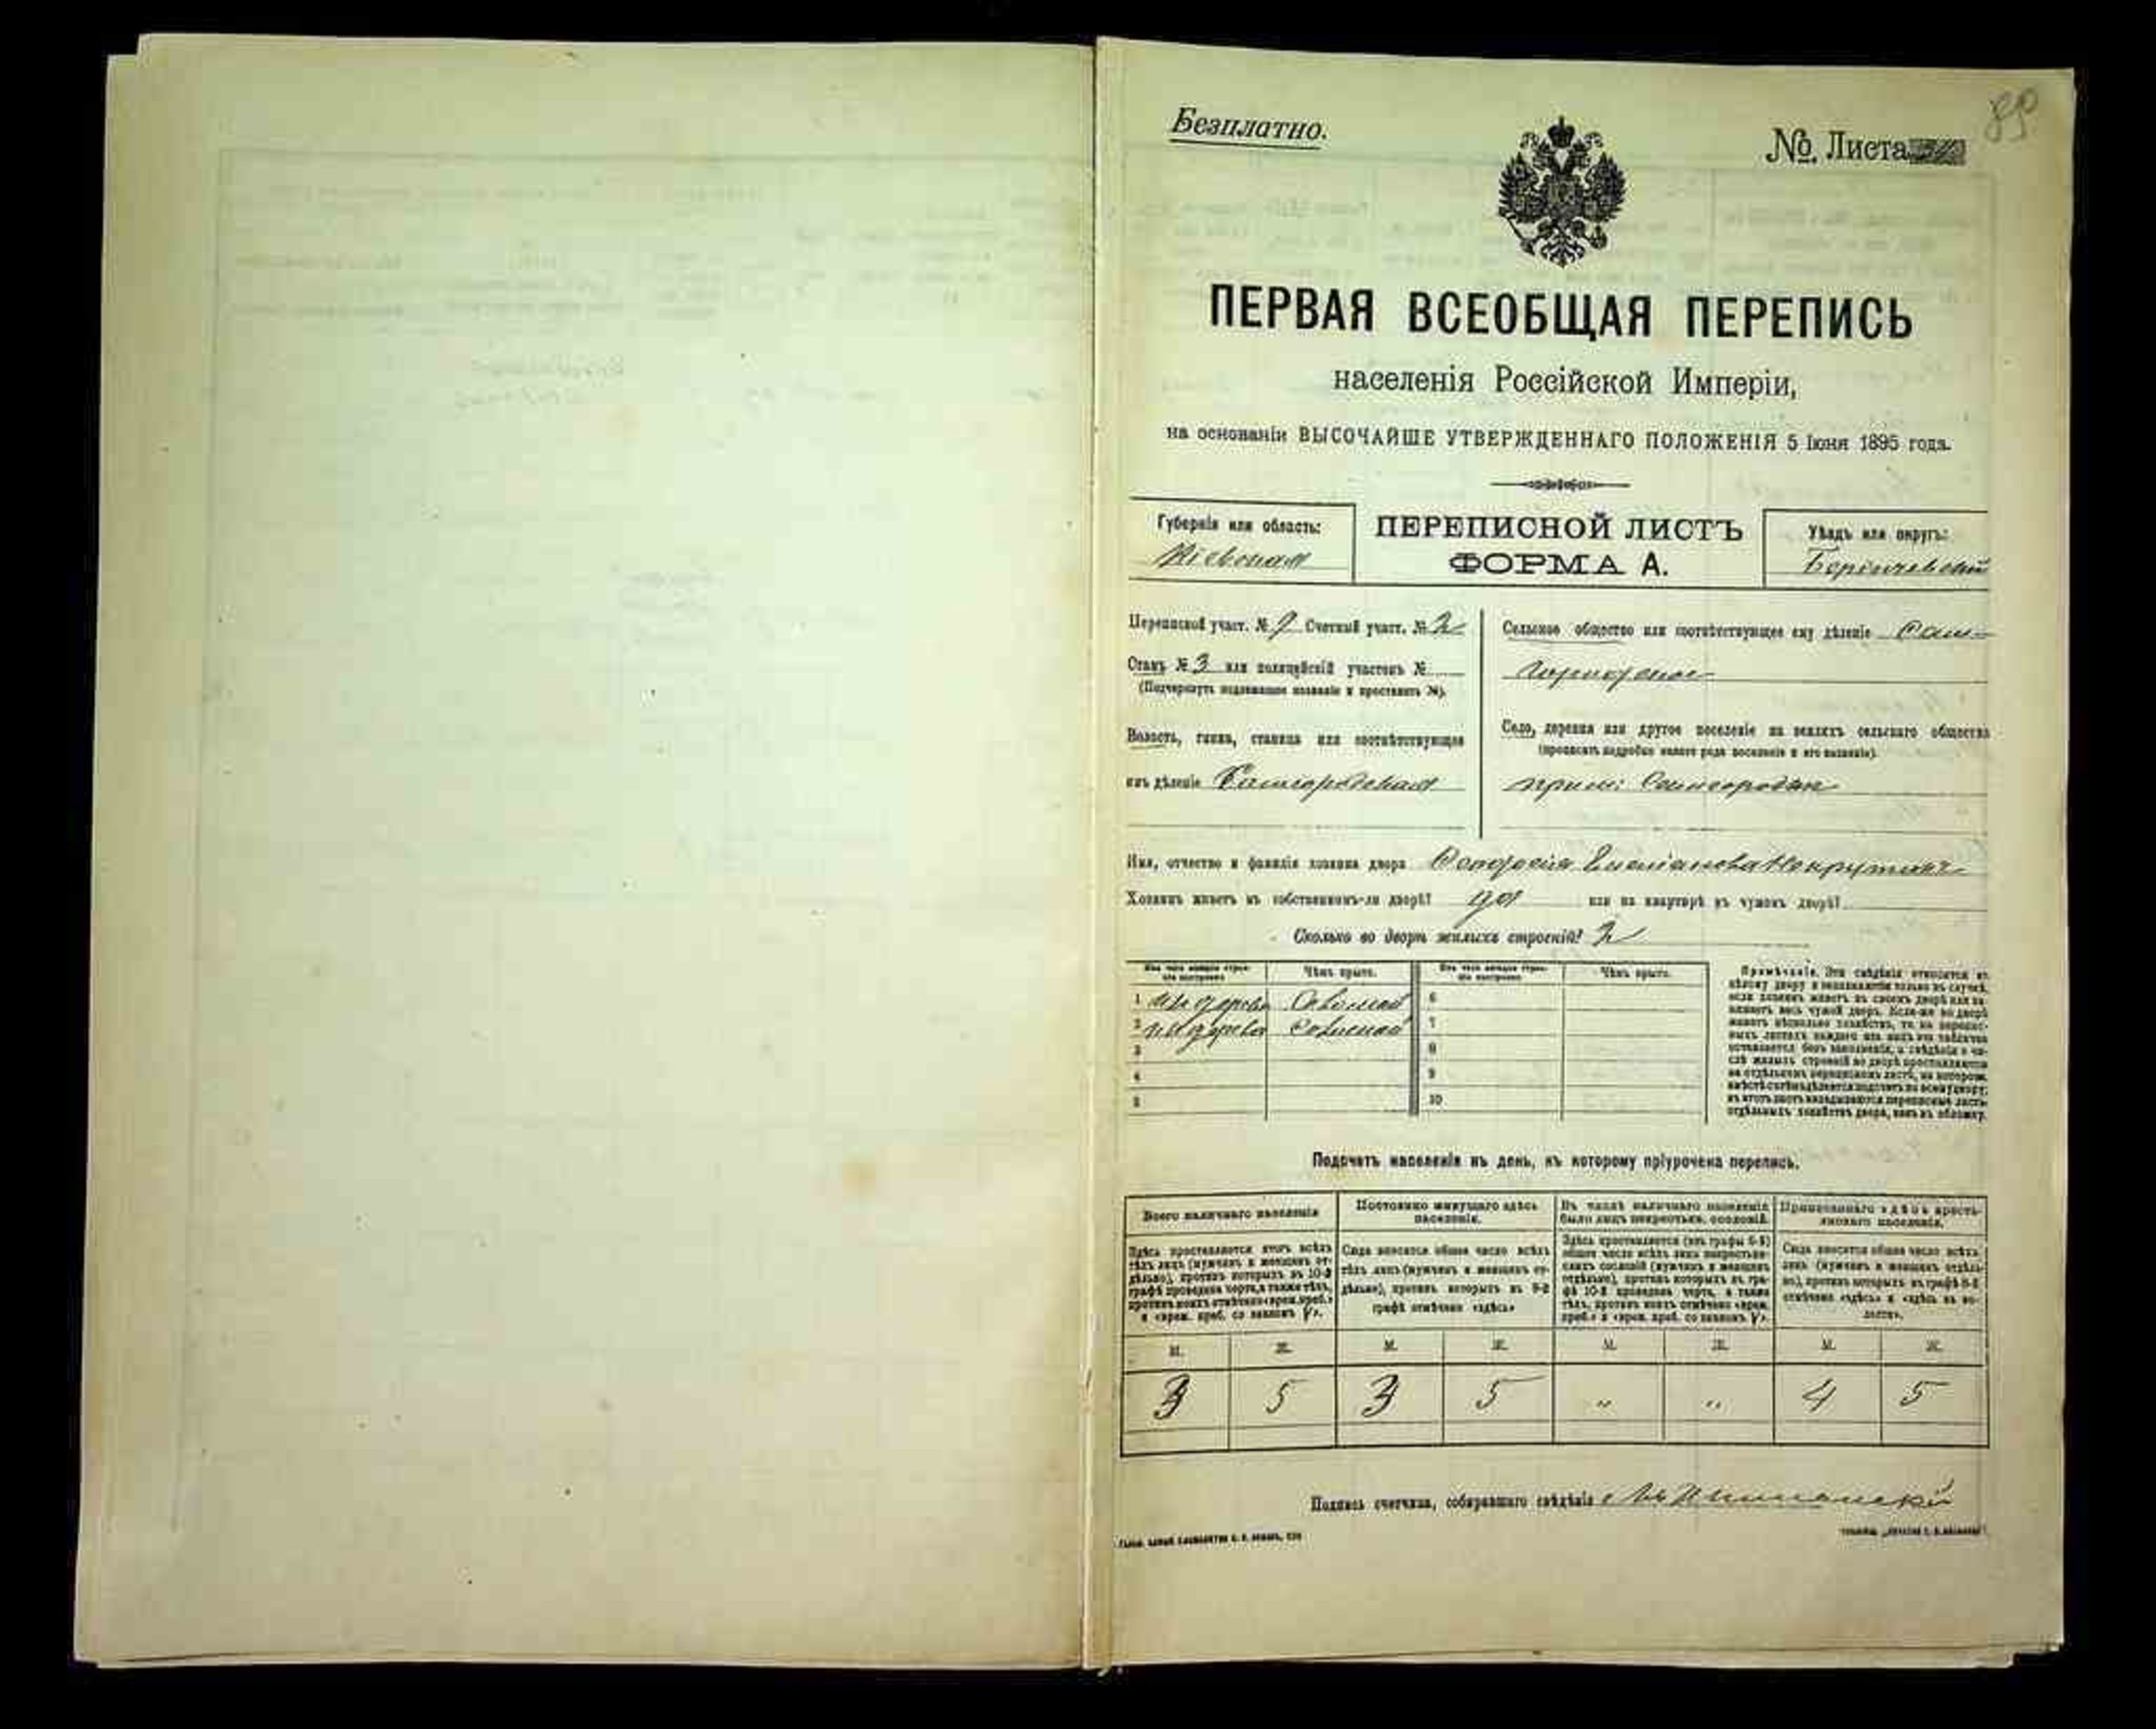 89
Безплатно.
№ Листа
ПЕРВАЯ ВСЕОБЩАЯ ПЕРЕПИСЬ
населенія Россійской Имперіи,
на основаніи ВЫСОЧАЙШЕ УТВЕРЖДЕННАГО ПОЛОЖЕНІЯ 5 Іюня 1895 года.
Губернія или область:
Кіевская
ПЕРЕПИСНОЙ ЛИСТЪ
ФОРМА А.
Уѣздъ или округъ:
Бердичевскій
Переписной участ. № 9 Счетный участ. № 2
Станъ № 3 или полицейскій участокъ №
(Подчеркнуть подлежащее названіе и проставить №).
Волость, гмина, станица или соотвѣтствующее
имъ дѣленіе Самгородская
Сельское общество или соотвѣтствующее ему дѣленіе Сам-
городское
Село, деревня или другое поселеніе на земляхъ сельскаго общества
(прописать подробно какого рода поселеніе и его названіе).
Самгородок
Имя, отчество и фамилія хозяина двора
Хозяинъ живетъ въ собственномъ-ли дворѣ? да или на квартирѣ въ чужомъ дворѣ?
Сколько во дворѣ жилыхъ строеній? 2
Изъ чего жилыя строенія построены Чѣмъ крыто. Изъ чего жилыя строенія построены Чѣмъ крыто.
1 изъ дерева Соломой 6
2 изъ дерева Соломой 7
3 8
4 9
5 10
Примѣчаніе. Эти свѣдѣнія относятся къ
цѣлому двору и заполняются только въ случаѣ,
если хозяинъ живетъ въ своемъ дворѣ или за-
нимаетъ весь чужой дворъ. Если-же во дворѣ
живетъ нѣсколько хозяйствъ, то на перепис-
ныхъ листахъ каждаго изъ нихъ эта табличка
оставляется безъ заполненія, а свѣдѣнія о чи-
слѣ жилыхъ строеній во дворѣ проставляются
на отдѣльномъ переписномъ листѣ, на которомъ
вмѣстѣ съ тѣмъ дѣлается подсчетъ по всему двору;
въ этотъ листъ вкладываются переписные листы
отдѣльныхъ хозяйствъ двора, какъ въ обложку.
Подсчетъ населенія въ день, къ которому пріурочена перепись.
Всего наличнаго населенія
Здѣсь проставляется итогъ всѣхъ
тѣхъ лицъ (мужчинъ и женщинъ от-
дѣльно), противъ которыхъ въ 10-й
графѣ проведена черта, а также тѣхъ,
противъ коихъ отмѣчено «врем. преб.»
и «врем. преб. со знакомъ V».
Постоянно живущаго здѣсь
населенія.
Сюда вносится общее число всѣхъ
тѣхъ лицъ (мужчинъ и женщинъ от-
дѣльно), противъ которыхъ въ 9-й
графѣ отмѣчено «здѣсь»
Въ числѣ наличнаго населенія
было лицъ некрестьян. сословій.
Здѣсь проставляется (изъ графы 6-й)
общее число всѣхъ лицъ некрестьян-
скихъ сословій (мужчинъ и женщинъ
отдѣльно), противъ которыхъ въ гра-
фѣ 10-й проведена черта, а также
тѣхъ, противъ коихъ отмѣчено «врем.
преб.» и «врем. преб. со знакомъ V».
Приписаннаго здѣсь кресть-
янскаго населенія.
Сюда вносится общее число всѣхъ
лицъ (мужчинъ и женщинъ отдѣль-
но), противъ которыхъ въ графѣ 8-й
отмѣчено «здѣсь» и «здѣсь въ во-
лости».
М. Ж. М. Ж. М. Ж. М. Ж.
3 5 3 5 " " 4 5
Подпись счетчика, собиравшаго свѣдѣнія